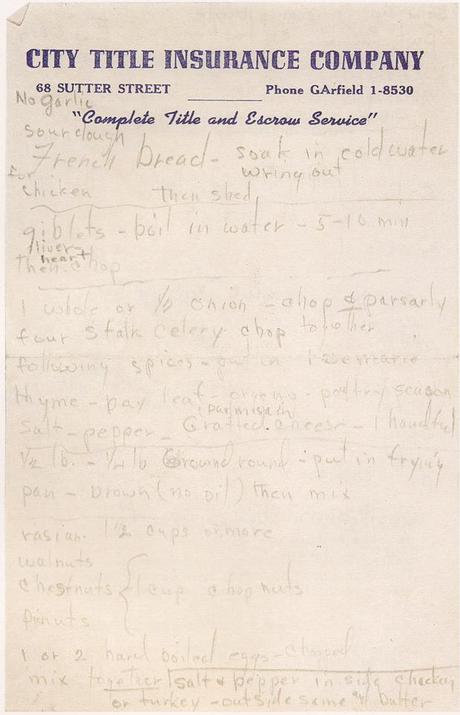 CITY TITLE INSURANCE COMPANY
68 SUTTER STREET Phone GArfield 1-8530
"Complete Title and Escrow Service"
No garlic
sourdough
French Bread - soak in cold water
for wring out
chicken then shed
giblets - boil in water - 5-10 min
liver-
heart
then chop
1 whole or 1/2 onion - chop & parsarly
four stalk celery chop together
following spices - put in
thyme - bay leaf - - poltry season
parmisian
salt - pepper - Grated cheese - 1 handful
1/2 lb. - 1/4 lb Ground round - put in frying
pan - brown (no oil) then mix
rasian. 1 1/2 cups or more
walnuts
chestnuts { 1 cup chop nuts
pinuts
1 or 2 hard boiled eggs - chopped
mix together | salt & pepper in side chicken
or turkey - outside same butter